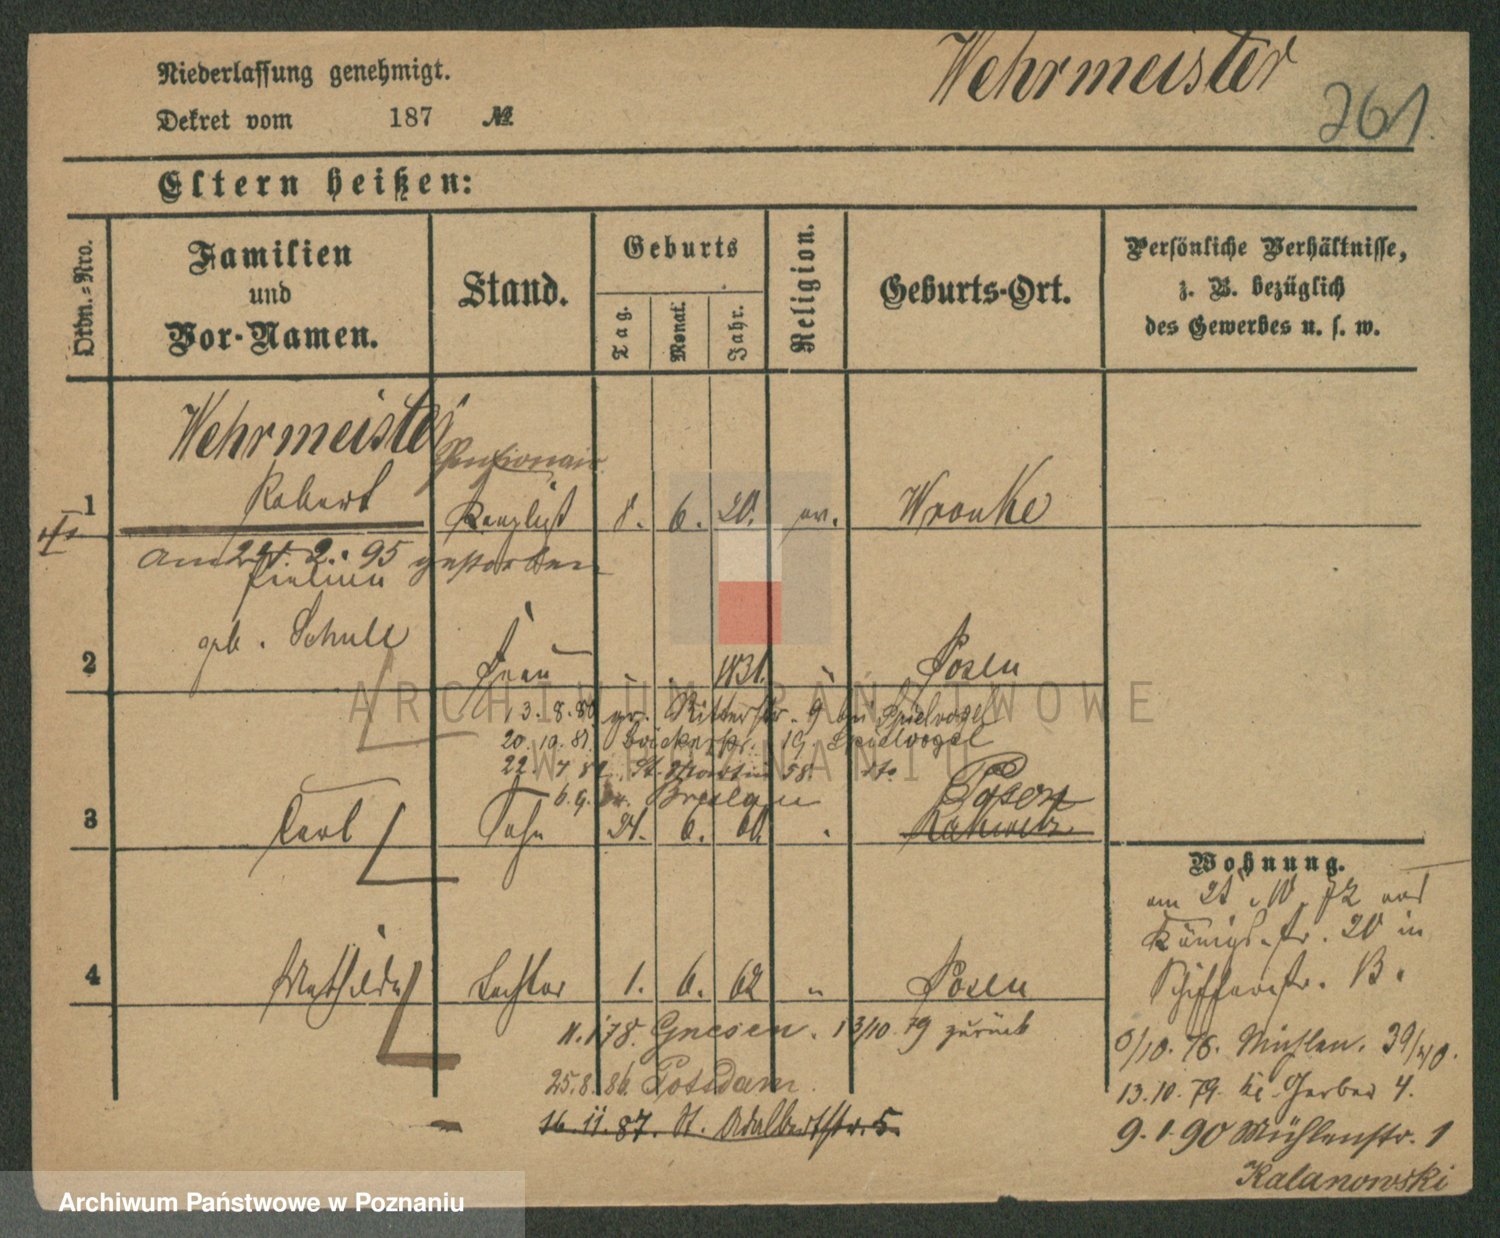 Wehrmeister
261.
Niederlassung genehmigt.
Dekret vom 187 №
Eltern heißen:
Ordn.-Nro.
Familien
und
Vor-Namen.
Stand.
Geburts
Tag.
Monat.
Jahr.
Religion.
Geburts-Ort.
Persönliche Verhältnisse,
z. B. bezüglich
des Gewerbes u. s. w.
Wehrmeister
Pensionair
1 Robert Kanzlist 8. 6. 20. ev. Wronke
am 2. 95 gestorben
geb. Schulz
2 Frau 1831. " Posen
13. 8. 80 gr. Ritterstr. 9 bei Spielvogel
20. 10. 81. Bäckerstr. 19 Spielvogel
22. 7. 82 St. Martin 58.
6. 9. Breslau
Posen
3 Carl Sohn 24. 6. 60 "
4 Mathilde Tochter 1. 6. 62 " Posen
11. 1 78. Gnesen. 13/10. 79 zurück
25. 8. 86. Potsdam.
16. 11. 87. St. Adalbertstr. 5.
Wohnung.
am 72 von
Königsstr. 20 in
Schifferstr. 13.
6/10. 76. Mühlen. 39/40.
13. 10. 79. kl. Gerber 4.
9. 1 90 Mühlenstr. 1
Kalanowski
ARCHIWUM PAŃSTWOWE
W POZNANIU
Archiwum Państwowe w Poznaniu